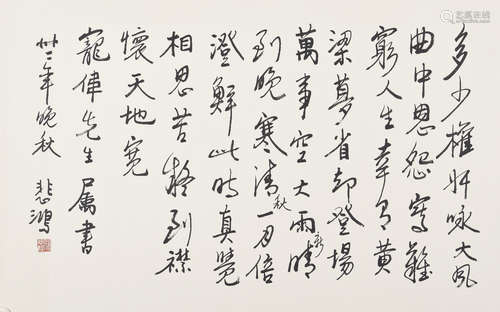 多少權奸咏大風
曲中恩怨寫難
窮人生幸有黃
梁夢省却登場
萬事空大雨新晴
到晚寒清秋一月倍
澄鮮此時真覺
相思苦到襟
懷天地寬
寵偉先生屬書
廿二年晚秋 悲鴻